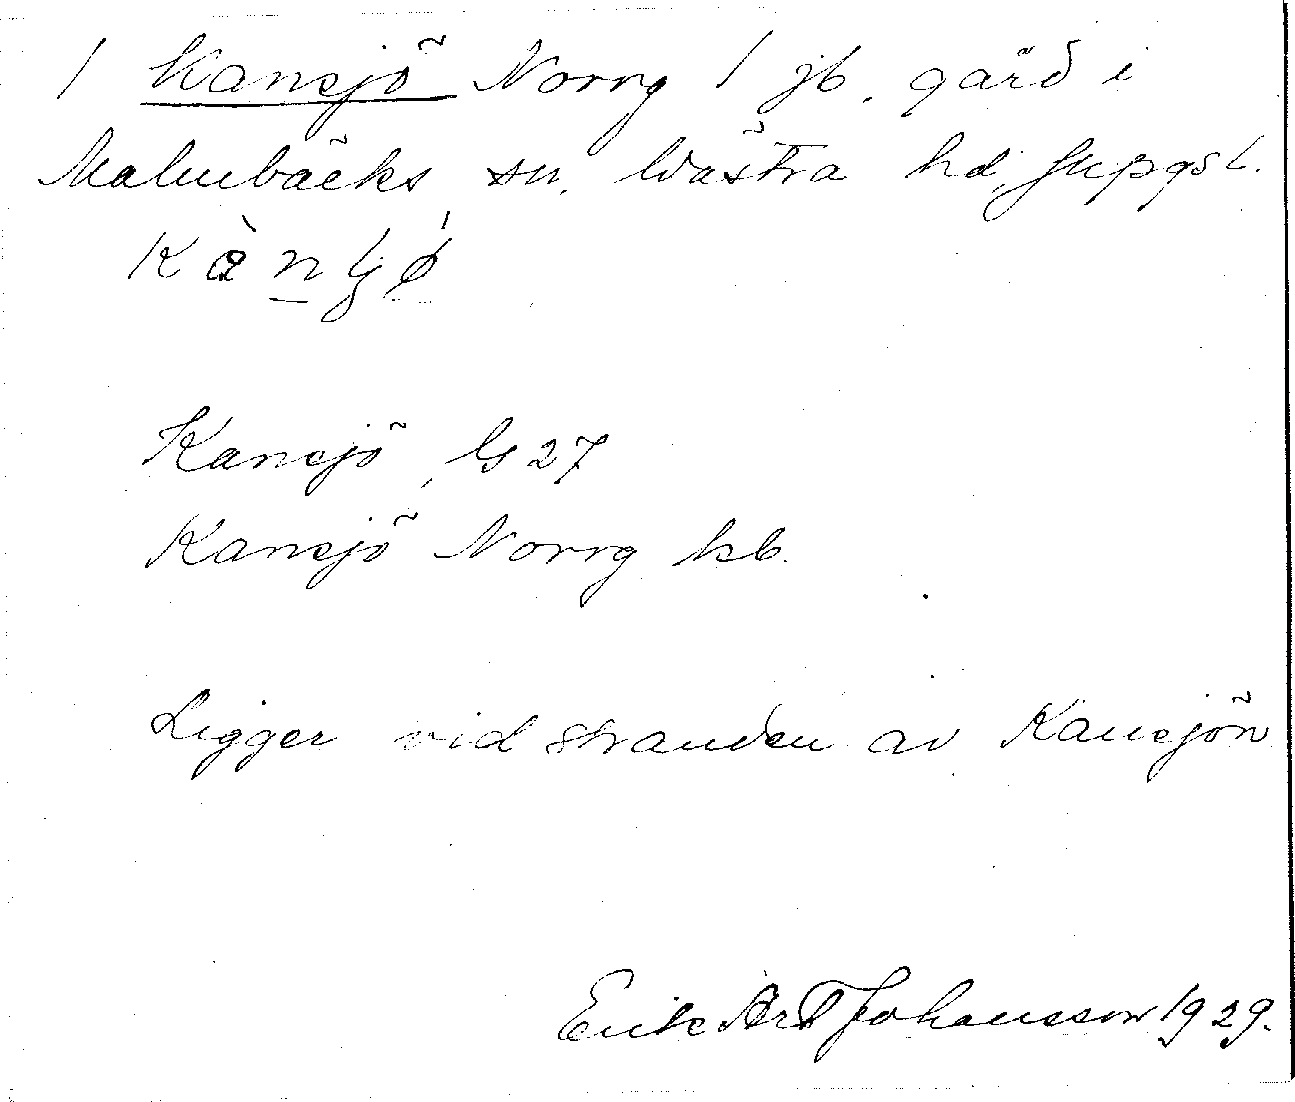 / Kansjö Norrg / jb. gård i
Malmbäcks sn. Västra hd, Jkpgs l.
Kansjö, G 27
Kansjö Norrg kb.
Ligger vid stranden av Kansjön
Erik Johansson 1929.